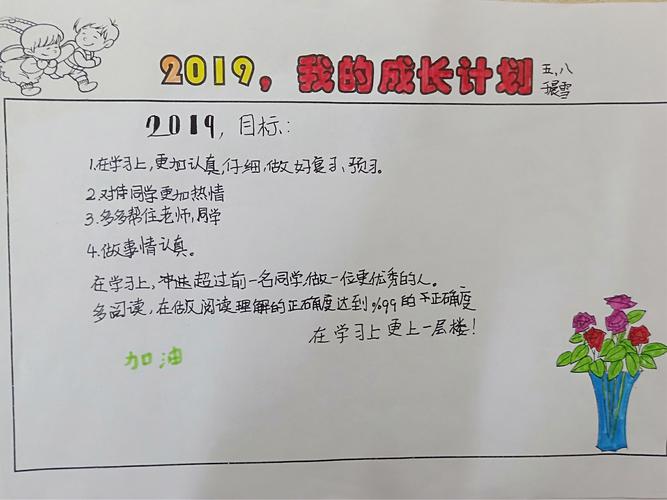 2019，我的成长计划
五，八
2019，目标：
1.在学习上，更加认真，仔细，做好复习、预习。
2.对待同学更加热情
3.多多帮住老师，同学
4.做事情认真。
在学习上，冲达超过前一名同学，做一位更优秀的人。
多阅读，在做阅读理解的正确度达到%99的正确度
在学习上更上一层楼！
加油